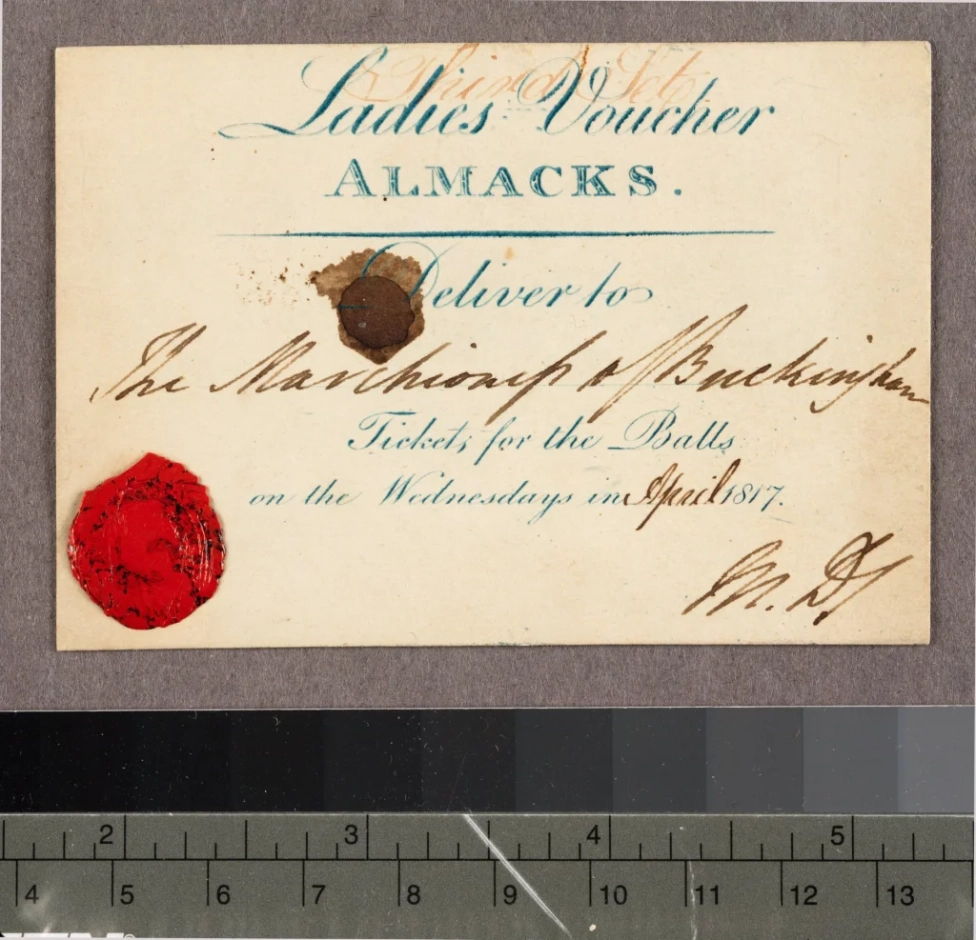 Third Set
Ladies Voucher
ALMACKS.
Deliver to
The Marchioness of Buckingham
Tickets for the Balls
on the Wednesdays in April 1817.
M. D.
2 3 4 5
4 5 6 7 8 9 10 11 12 13